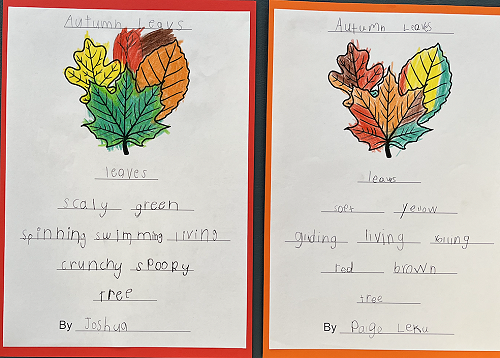 Autumn Leavs
leaves
scaly green
spinning swimming living
crunchy spoopy
Tree
By Joshua
Autumn Leaves
leaves
soft yellow
living
red brown
tree
By Paige Leku